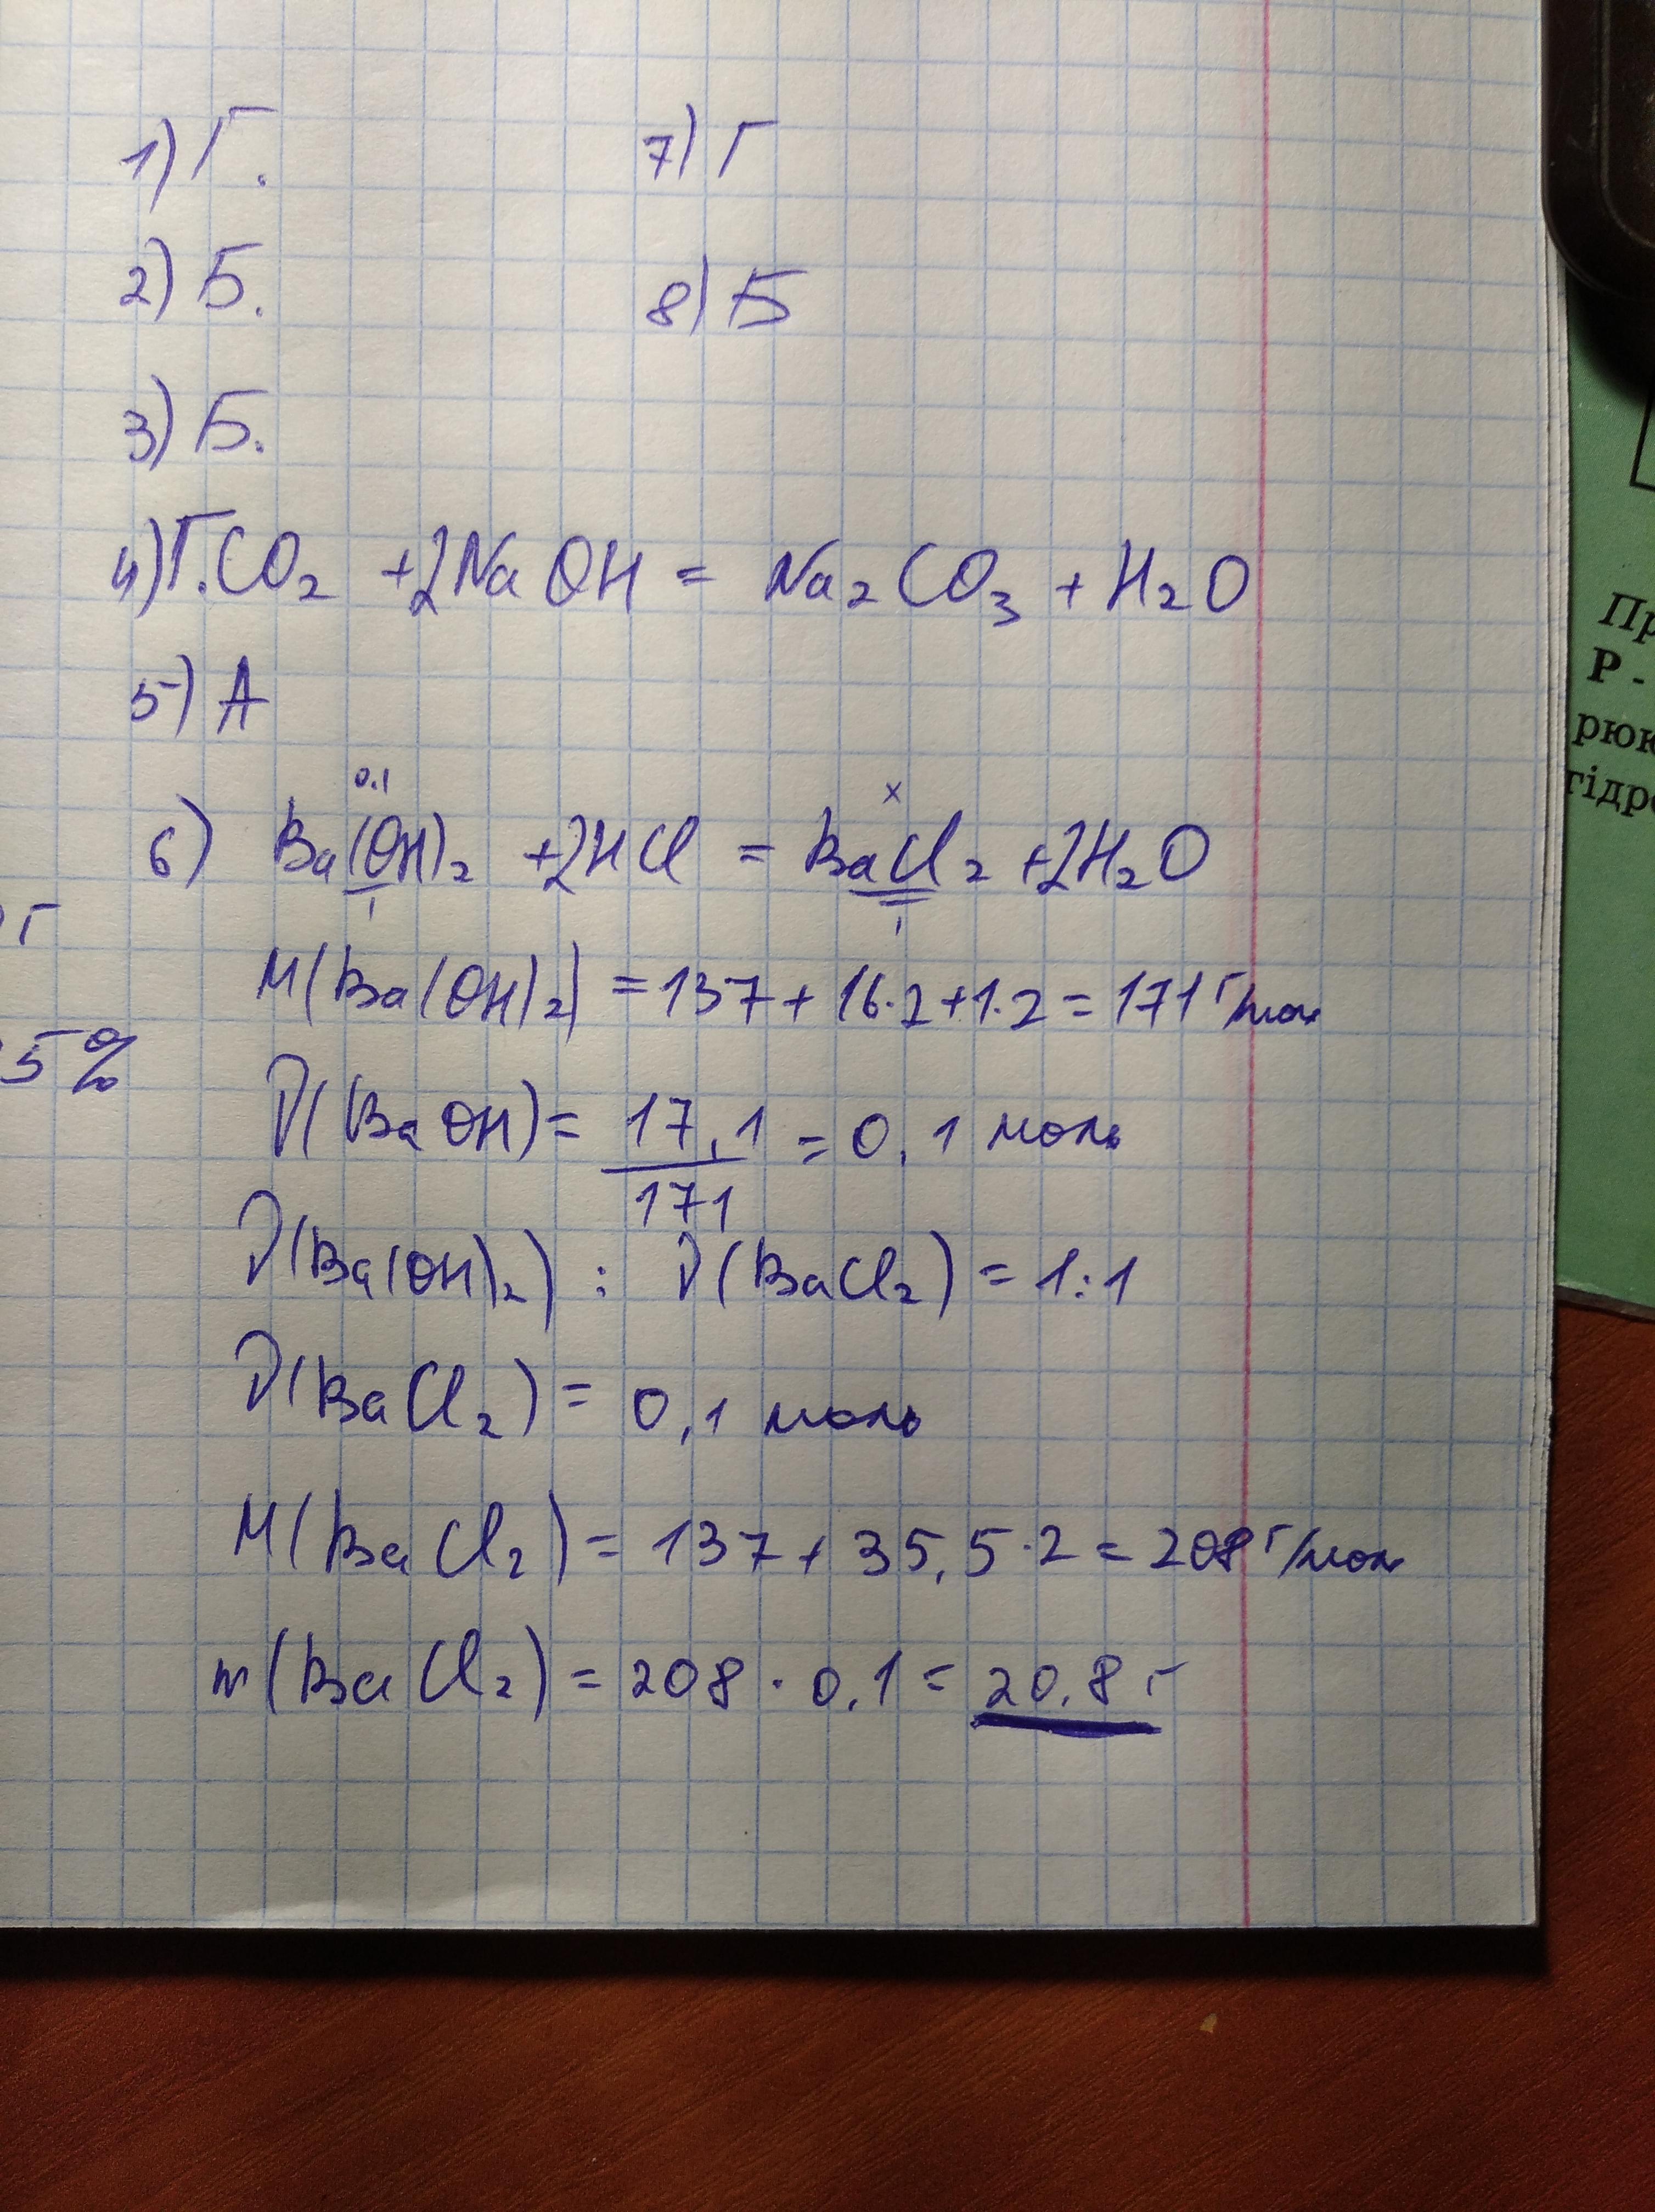 1) Г.
2) Б.
3) Б.
4) Г. CO₂ + 2NaOH = Na₂CO₃ + H₂O
5) А
7) Г
8) Б
0.1 x
6) Ba(OH)₂ + 2HCl = BaCl₂ + 2H₂O
1 1
M(Ba(OH)₂) = 137 + 16·2 + 1·2 = 171 г/моль
ν(BaOH) = 17,1/171 = 0,1 моль
ν(Ba(OH)₂) : ν(BaCl₂) = 1:1
ν(BaCl₂) = 0,1 моль
M(BaCl₂) = 137 + 35,5·2 = 208 г/моль
m(BaCl₂) = 208 · 0,1 = 20,8 г
г
5%
Р -